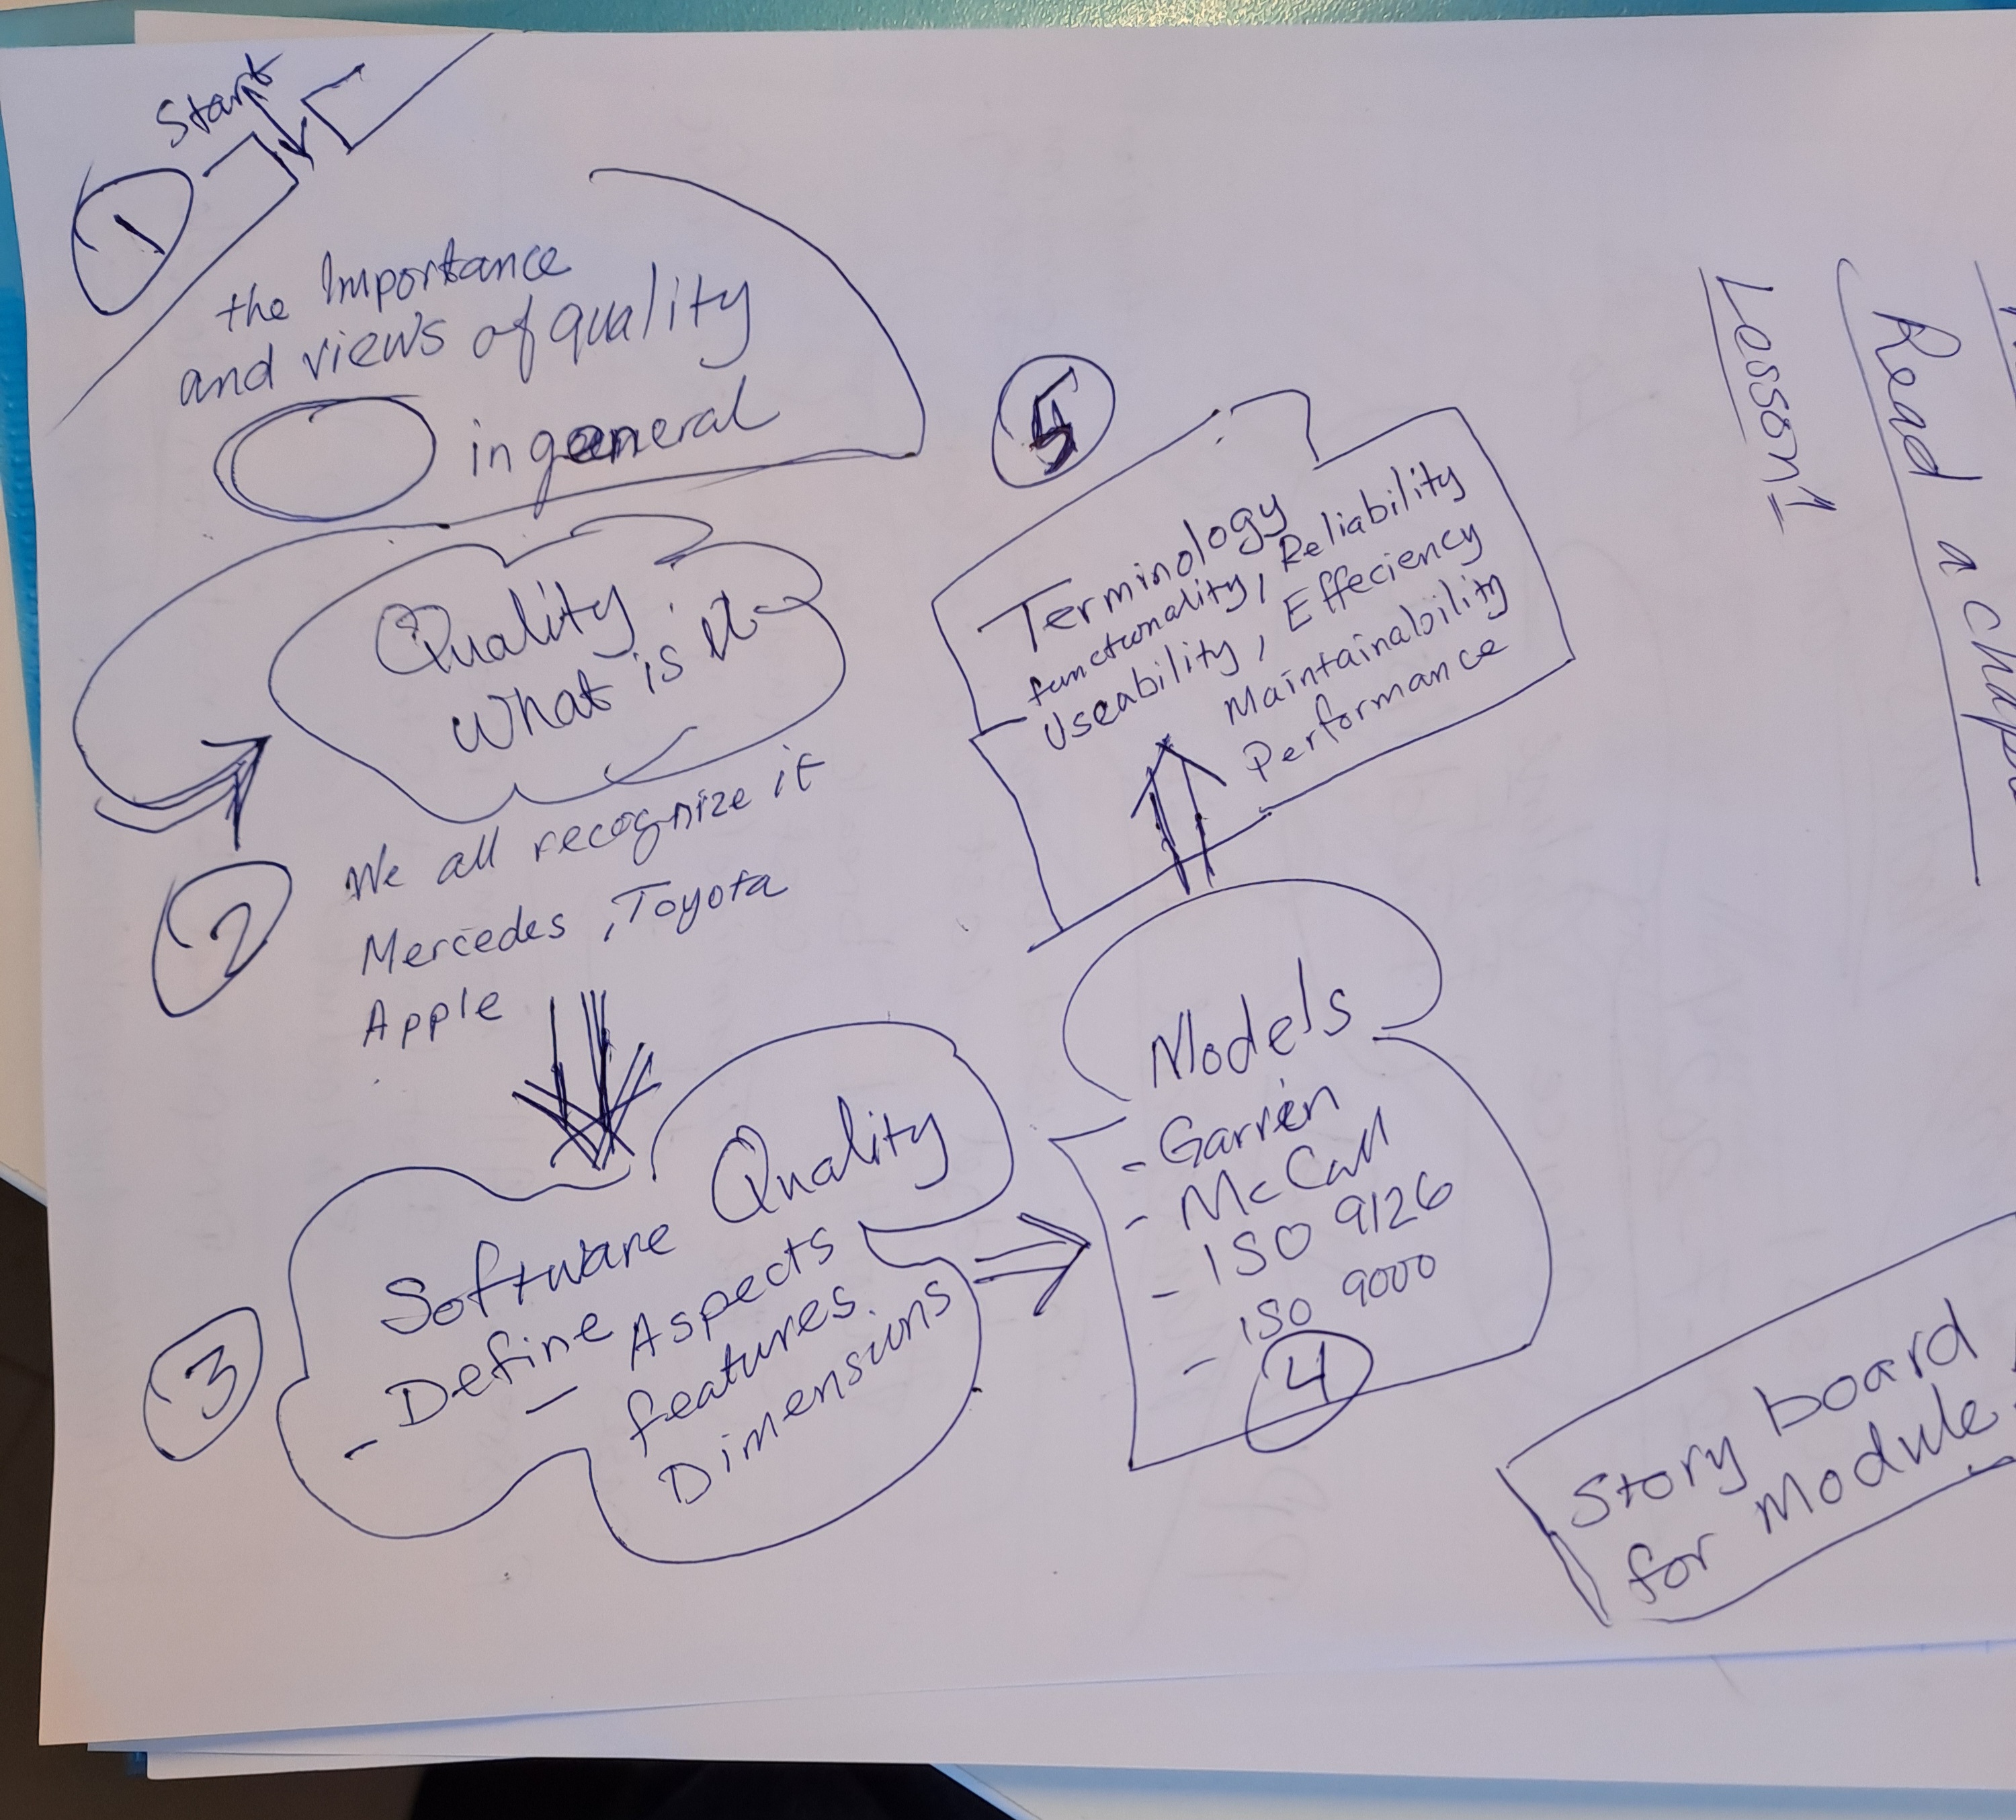 Start
1
the Importance
and views of quality
in general
Quality
what is it
2
We all recognize it
Mercedes, Toyota
Apple
3
Software Quality
- Define - Aspects
features.
Dimensions
Models
- Garvén
- McCall
- ISO 9126
- ISO 9000
4
5
Terminology
functionality, Reliability
Useability, Effeciency
Maintainability
Performance
Lesson 1
Read a
Story board
for Module